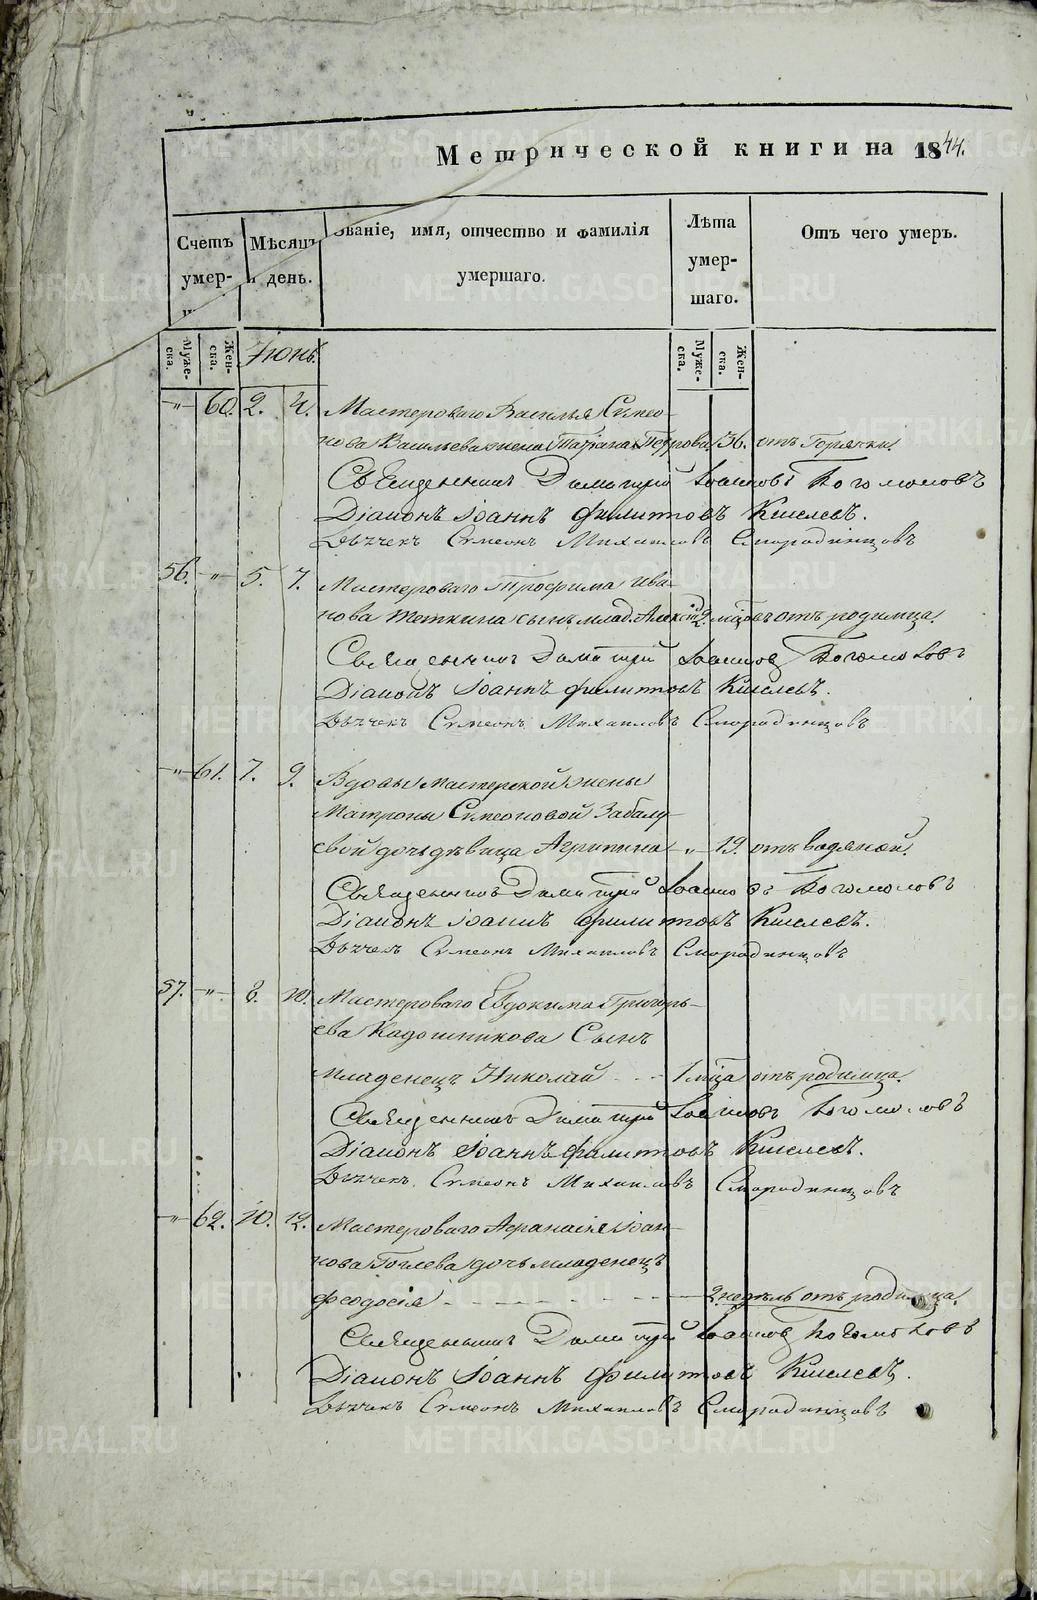 Метрической книги на 1844.
Счетъ умер-
Мѣсяцъ день.
званіе, имя, отчество и фамилія умершаго.
Лѣта умер- шаго.
Отъ чего умеръ.
Муже- ска.
Жен- ска.
Іюнь
Муже- ска.
Жен- ска.
-"- 60. 2. 4. Мастероваго Василья Симео-
нова Васильева жена Татіана Петрова. 36. отъ Горячки.
Священникъ Димитрій Іоанновъ Богомоловъ
Діаконъ Іоаннъ Филитовъ Киселевъ.
Дьячекъ Симеонъ Михаиловъ Смородинцовъ
56. -"- 5. 7. Мастероваго Трофима Ива-
нова Теткина сынъ млад. Алексій 2 мцовъ отъ родимца.
Священникъ Димитрій Іоанновъ Богомоловъ
Діаконъ Іоаннъ Филитовъ Киселевъ.
Дьячекъ Симеонъ Михаиловъ Смородинцовъ
-"- 61. 7. 9. Вдовы мастерской жены
Матроны Симеоновой Забалу-
евой дочь дѣвица Агрипина -"- 19. отъ водяной.
Священникъ Димитрій Іоанновъ Богомоловъ
Діаконъ Іоаннъ Филитовъ Киселевъ.
Дьячекъ Симеонъ Михаиловъ Смородинцовъ
57. -"- 8. 10. Мастероваго Евдокима Григорь-
ева Кадошникова Сынъ
младенецъ Николай - - - 1 мца отъ родимца.
Священникъ Димитрій Іоанновъ Богомоловъ
Діаконъ Іоаннъ Филитовъ Киселевъ.
Дьячекъ Симеонъ Михаиловъ Смородинцовъ
-"- 62. 10. 12. Мастероваго Афанасія Іоан-
нова дочь младенецъ
Феодосія - - - - - - - 2 недѣль отъ родимца.
Священникъ Димитрій Іоанновъ Богомоловъ
Діаконъ Іоаннъ Филитовъ Киселевъ.
Дьячекъ Симеонъ Михаиловъ Смородинцовъ
METRIKI.GASO-URAL.RU